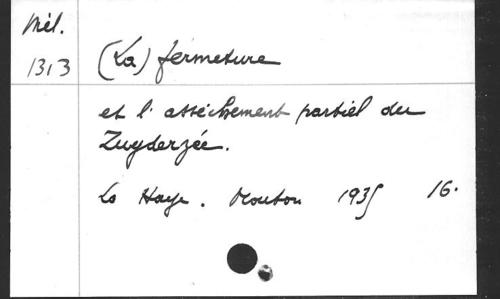 Mél.
1313
(La) fermeture
et l'asséchement partiel du
Zuyderzée.
La Haye. Mouton 1935 16.